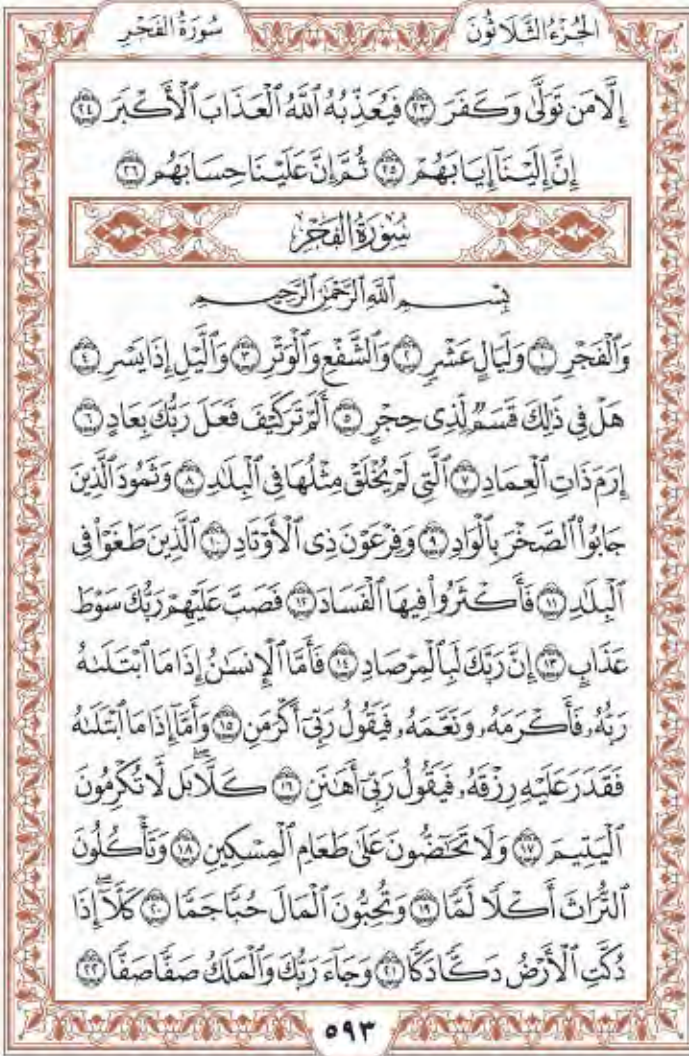 سُورَةُ الفَجْرِ الجُزْءُ الثَّلَاثُونَ
إِلَّا مَن تَوَلَّىٰ وَكَفَرَ ٢٣ فَيُعَذِّبُهُ ٱللَّهُ ٱلْعَذَابَ ٱلْأَكْبَرَ ٢٤
إِنَّ إِلَيْنَآ إِيَابَهُمْ ٢٥ ثُمَّ إِنَّ عَلَيْنَا حِسَابَهُم ٢٦
سُورَةُ الفَجْرِ
بِسْمِ ٱللَّهِ ٱلرَّحْمَٰنِ ٱلرَّحِيمِ
وَٱلْفَجْرِ ١ وَلَيَالٍ عَشْرٍ ٢ وَٱلشَّفْعِ وَٱلْوَتْرِ ٣ وَٱلَّيْلِ إِذَا يَسْرِ ٤
هَلْ فِى ذَٰلِكَ قَسَمٌ لِّذِى حِجْرٍ ٥ أَلَمْ تَرَ كَيْفَ فَعَلَ رَبُّكَ بِعَادٍ ٦
إِرَمَ ذَاتِ ٱلْعِمَادِ ٧ ٱلَّتِى لَمْ يُخْلَقْ مِثْلُهَا فِى ٱلْبِلَٰدِ ٨ وَثَمُودَ ٱلَّذِينَ
جَابُوا۟ ٱلصَّخْرَ بِٱلْوَادِ ٩ وَفِرْعَوْنَ ذِى ٱلْأَوْتَادِ ١٠ ٱلَّذِينَ طَغَوْا۟ فِى
ٱلْبِلَٰدِ ١١ فَأَكْثَرُوا۟ فِيهَا ٱلْفَسَادَ ١٢ فَصَبَّ عَلَيْهِمْ رَبُّكَ سَوْطَ
عَذَابٍ ١٣ إِنَّ رَبَّكَ لَبِٱلْمِرْصَادِ ١٤ فَأَمَّا ٱلْإِنسَٰنُ إِذَا مَا ٱبْتَلَىٰهُ
رَبُّهُۥ فَأَكْرَمَهُۥ وَنَعَّمَهُۥ فَيَقُولُ رَبِّىٓ أَكْرَمَنِ ١٥ وَأَمَّآ إِذَا مَا ٱبْتَلَىٰهُ
فَقَدَرَ عَلَيْهِ رِزْقَهُۥ فَيَقُولُ رَبِّىٓ أَهَٰنَنِ ١٦ كَلَّا ۖ بَل لَّا تُكْرِمُونَ
ٱلْيَتِيمَ ١٧ وَلَا تَحَٰٓضُّونَ عَلَىٰ طَعَامِ ٱلْمِسْكِينِ ١٨ وَتَأْكُلُونَ
ٱلتُّرَاثَ أَكْلًا لَّمًّا ١٩ وَتُحِبُّونَ ٱلْمَالَ حُبًّا جَمًّا ٢٠ كَلَّآ ۖ إِذَا
دُكَّتِ ٱلْأَرْضُ دَكًّا دَكًّا ٢١ وَجَآءَ رَبُّكَ وَٱلْمَلَكُ صَفًّا صَفًّا ٢٢
٥٩٣